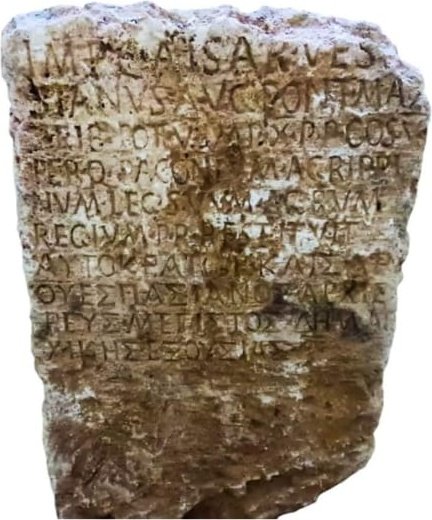 IMP CAISAR VES
IANVS AVG PONT MAX
TRIB·POT·V·IMP·X·P·P·COS·V
PER·Q·PACONIVM·AGRIPPI
NVM·LEG·SVVM·AGRVM
REGIVM·P·R·RESTITVIT
ΑΥΤΟΚΡΑΤΩΡ ΚΑΙΣΑΡ
ΟΥΕΣΠΑΣΙΑΝΟΣ ΑΡΧΙΕ
ΡΕΥΣ ΜΕΓΙΣΤΟΣ ΔΗΜΑΡ
ΧΙΚΗΣ ΕΞΟΥΣΙΑΣ